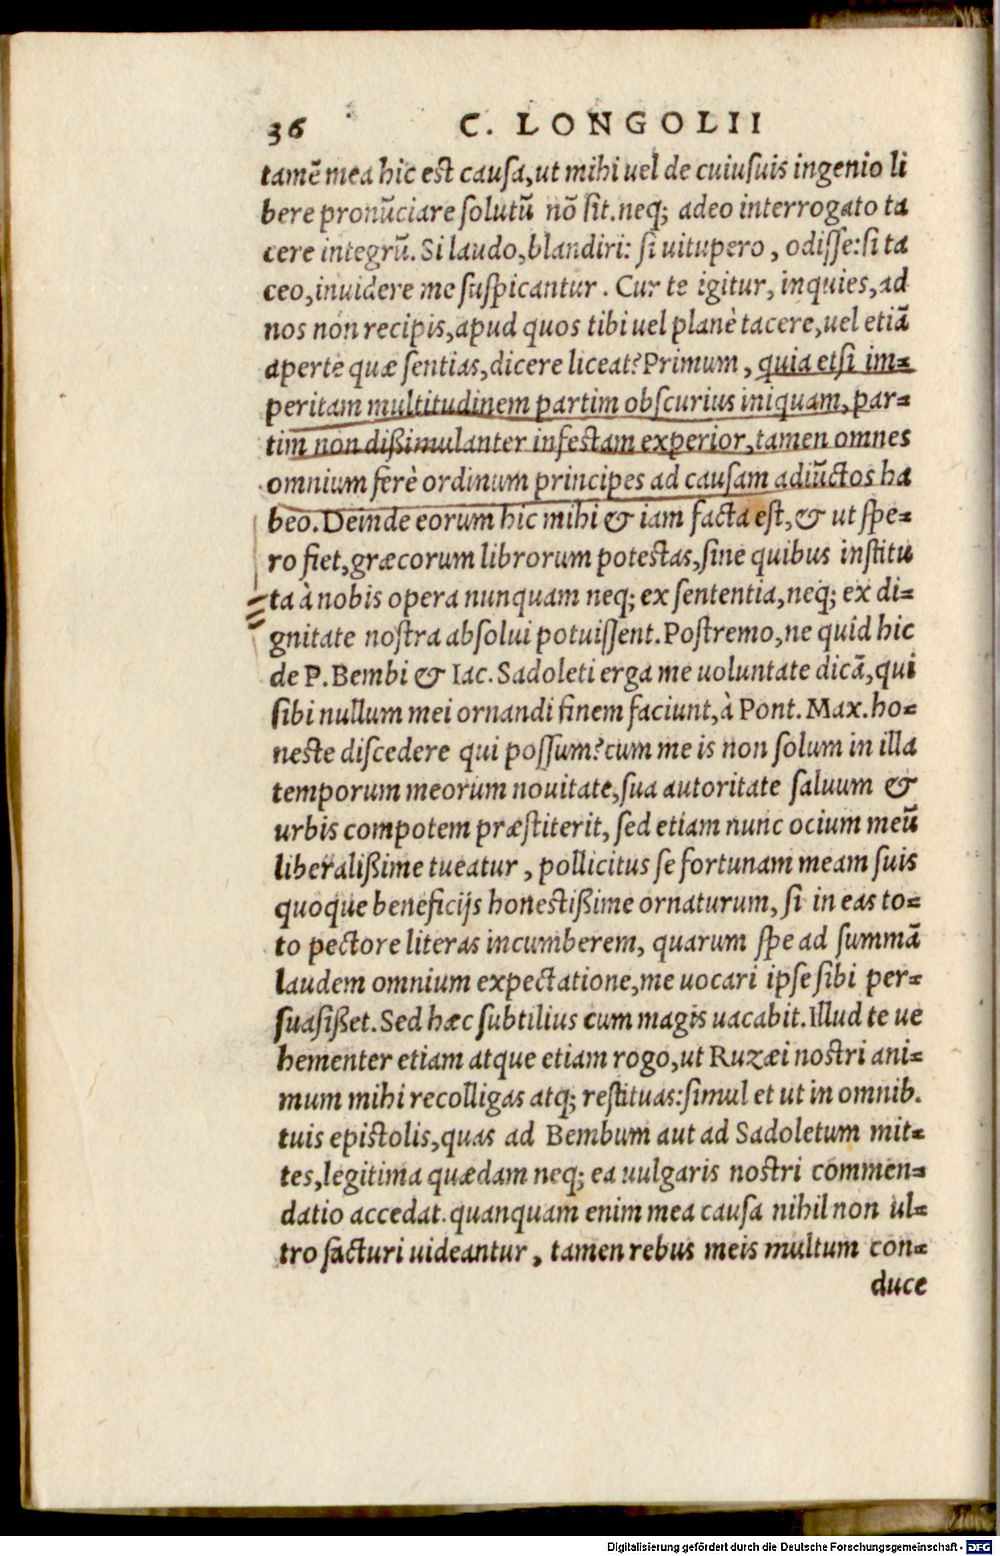 36 C. LONGOLII
tamē mea hic est causa, ut mihi uel de cuiusuis ingenio li
bere pronūciare solutū nō sit. neq; adeo interrogato ta
cere integrū. Si laudo, blandiri: si uitupero, odisse: si ta
ceo, inuidere me suspicantur. Cur te igitur, inquies, ad
nos non recipis, apud quos tibi uel planè tacere, uel etiā
aperte quæ sentias, dicere liceat? Primum, quia etsi im-
peritam multitudinem partim obscurius iniquam, par-
tim non dißimulanter infestam experior, tamen omnes
omnium ferè ordinum principes ad causam adiūctos ha
beo. Deinde eorum hic mihi & iam facta est, & ut spe-
ro fiet, græcorum librorum potestas, sine quibus institu
ta à nobis opera nunquam neq; ex sententia, neq; ex di-
gnitate nostra absolui potuissent. Postremo, ne quid hic
de P. Bembi & Iac. Sadoleti erga me uoluntate dicā, qui
sibi nullum mei ornandi finem faciunt, à Pont. Max. ho-
neste discedere qui possum? cum me is non solum in illa
temporum meorum nouitate, sua autoritate saluum &
urbis compotem præstiterit, sed etiam nunc ocium meū
liberalißime tueatur, pollicitus se fortunam meam suis
quoque beneficijs honestißime ornaturum, si in eas to-
to pectore literas incumberem, quarum spe ad summā
laudem omnium expectatione, me uocari ipse sibi per-
suasißet. Sed hæc subtilius cum magis uacabit. Illud te ue
hementer etiam atque etiam rogo, ut Ruzæi nostri ani-
mum mihi recolligas atq; restituas: simul et ut in omnib.
tuis epistolis, quas ad Bembum aut ad Sadoletum mit-
tes, legitima quædam neq; ea uulgaris nostri commen-
datio accedat. quanquam enim mea causa nihil non ul-
tro facturi uideantur, tamen rebus meis multum con-
duce
Digitalisierung gefördert durch die Deutsche Forschungsgemeinschaft - DFG